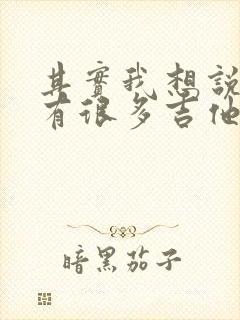 其實我想說
有很多吉他
暗黑茄子